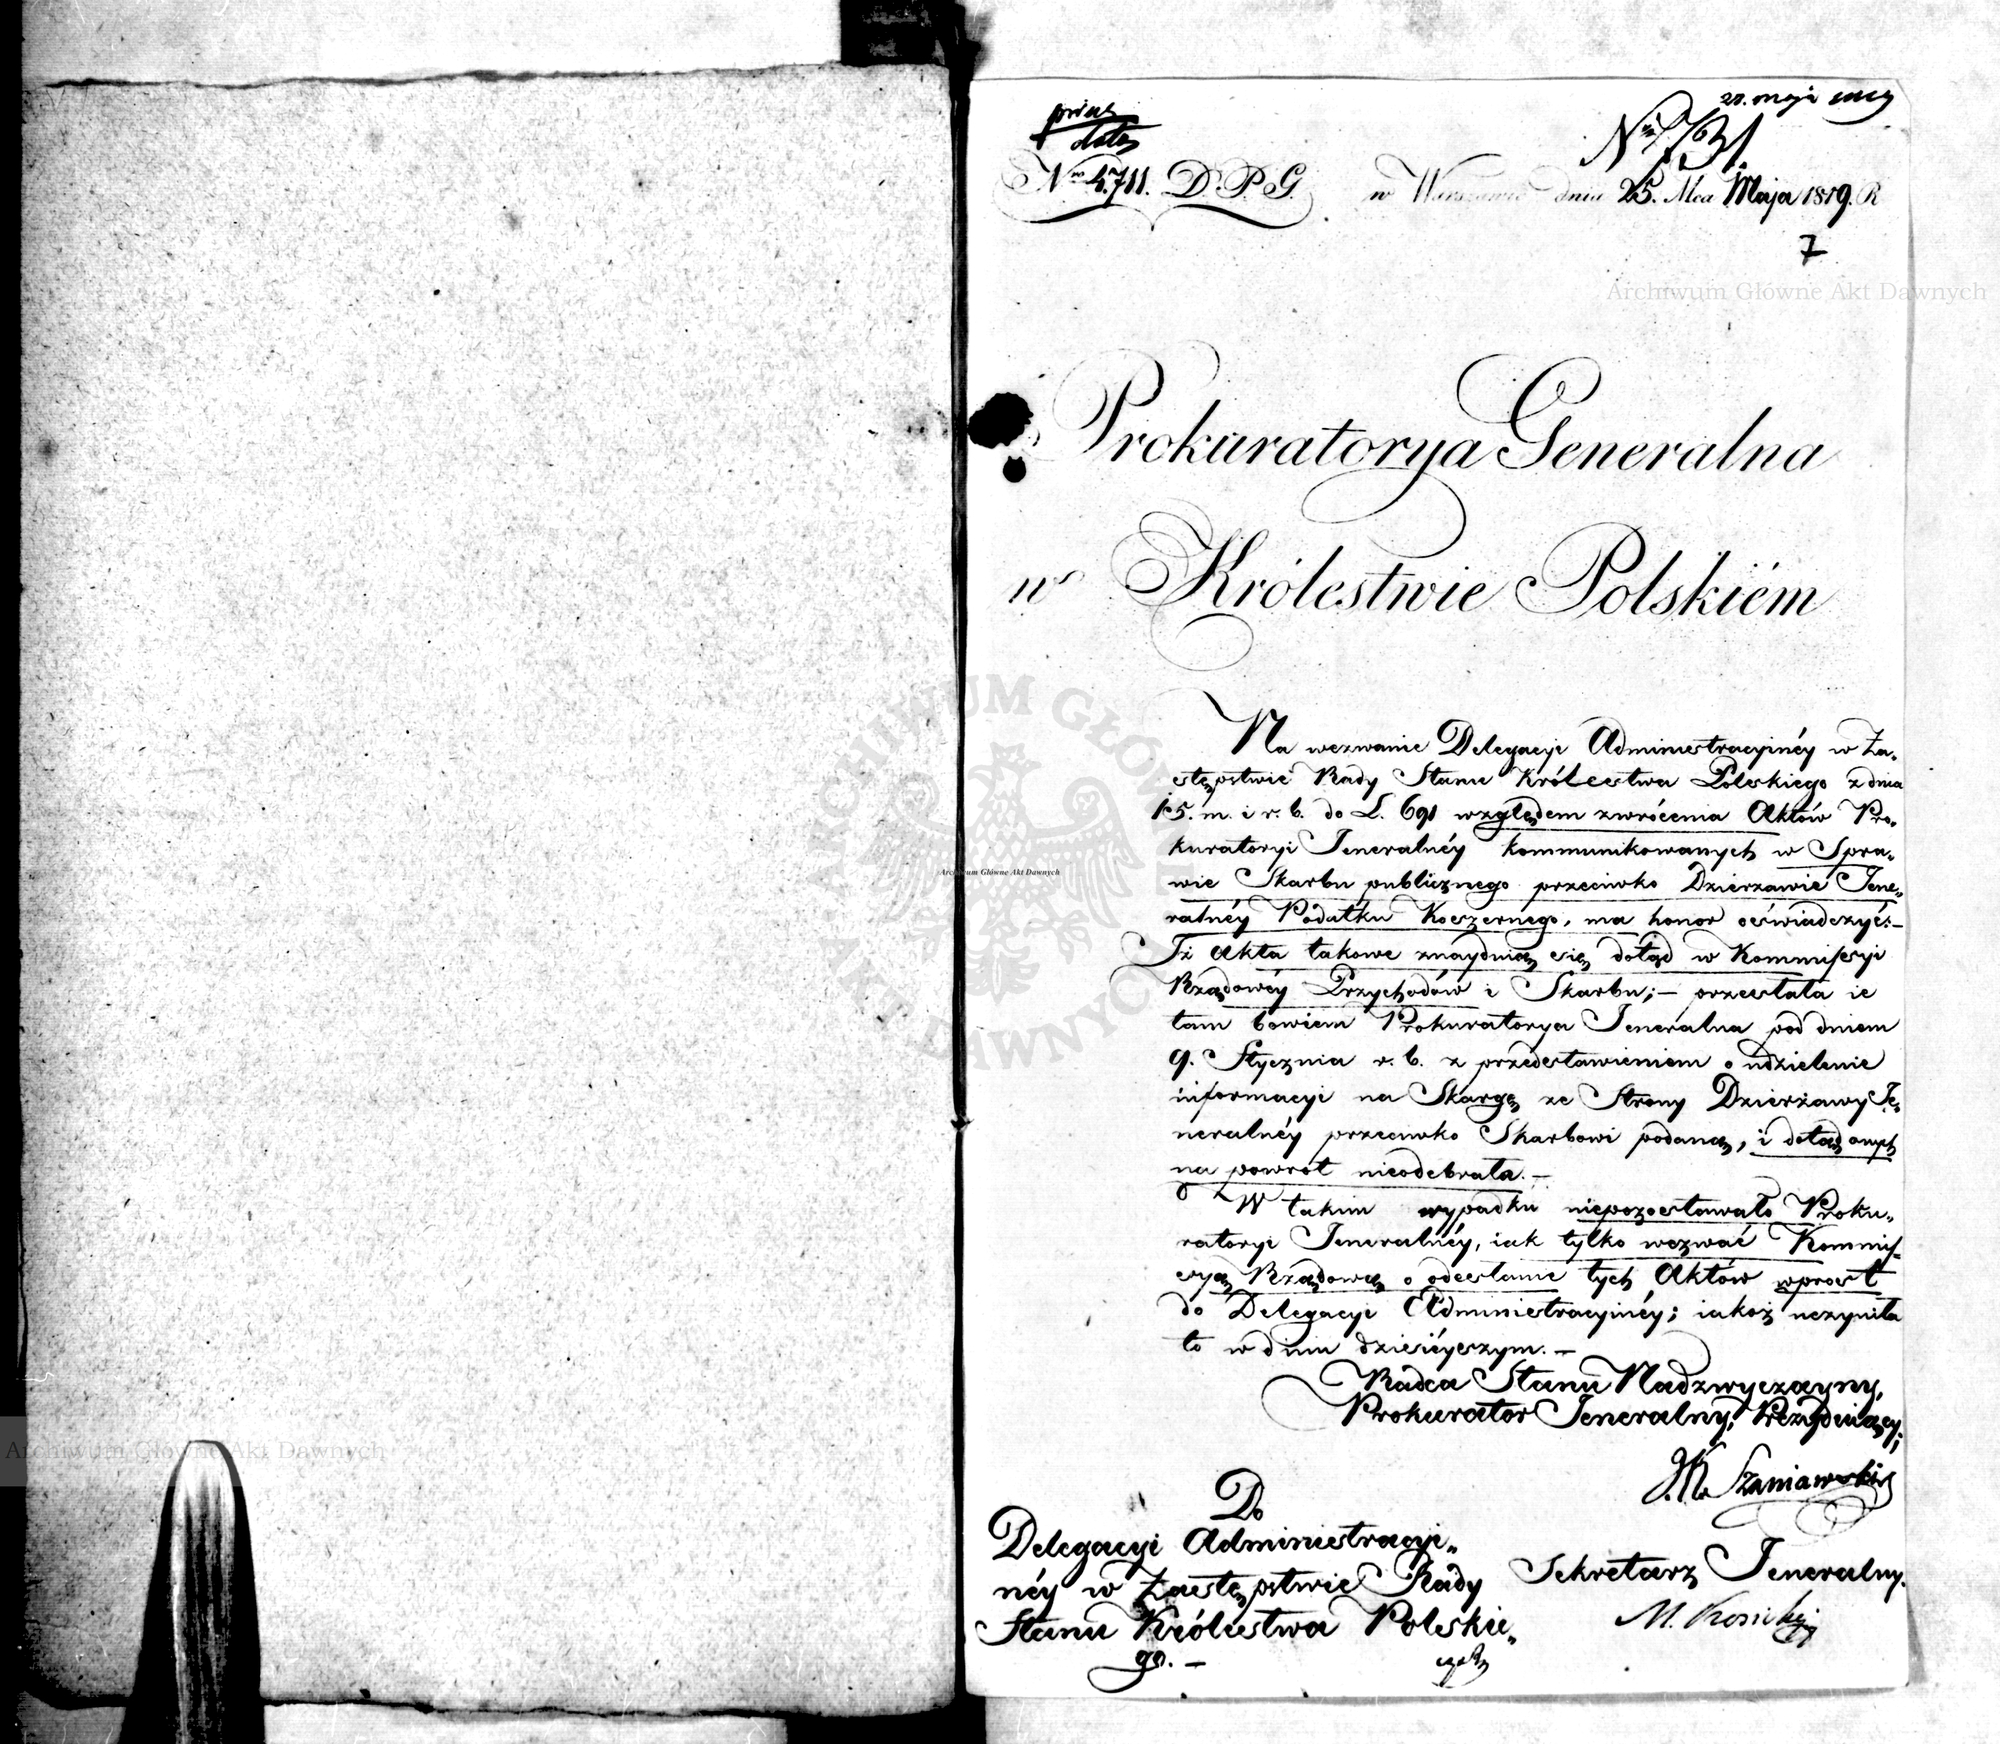 28. maja
N 731
Nro 4,711. D.P.G.
w Warszawie dnia 25. Mca Maja 1819. R
7
Archiwum Główne Akt Dawnych
Prokuratorya Generalna
w Królestwie Polskiém
Na wezwanie Delegacyi Administracyinéy w Za„
stępstwie Rady Stanu Królestwa Polskiego z dnia
15. m. i r. b. do L. 691 względem zwrócenia Aktów Pro„
kuratoryi Jeneralnéy kommunikowanych w Spra„
wie Skarbu publicznego przeciwko Dzierzawie Jene„
ralnéy Podatku Koszernego, ma honor oświadczyć:—
Iż Akta takowe znayduią się dotąd w Kommissyi
Rządowéy Przychodów i Skarbu;— przesłała ie
tam bowiem Prokuratorya Jeneralna pod dniem
9. Stycznia r. b. z przedstawieniem o udzielenie
informacyi na Skargę ze Strony Dzierżawy Je„
neralnéy przeciwko Skarbowi podaną, i dotąd onych
na powrót nieodebrała.—
W takim wypadku niepozostawało Proku„
ratoryi Jeneralnéy, iak tylko wezwać Kommis„
syą Rządową o odesłanie tych Aktów wprost
do Delegacyi Administracyinéy; iakoż uczyniła
to w dniu dzisiéyszym.—
Radca Stanu Nadzwyczayny,
Prokurator Jeneralny, Prezyduiący;
J. K. Szaniawski
Do
Delegacyi Administracyi„
néy w Zastępstwie Rady
Stanu Królestwa Polskie„
go.—
Sekretarz Jeneralny.
M.
Archiwum Główne Akt Dawnych
ARCHIWUM GŁÓWNE AKT DAWNYCH
Archiwum Główne Akt Dawnych